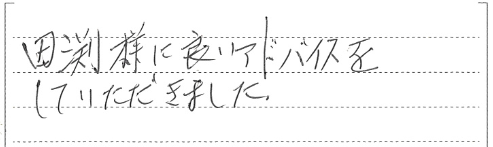 田渕様に良いアドバイスを
していただきました。